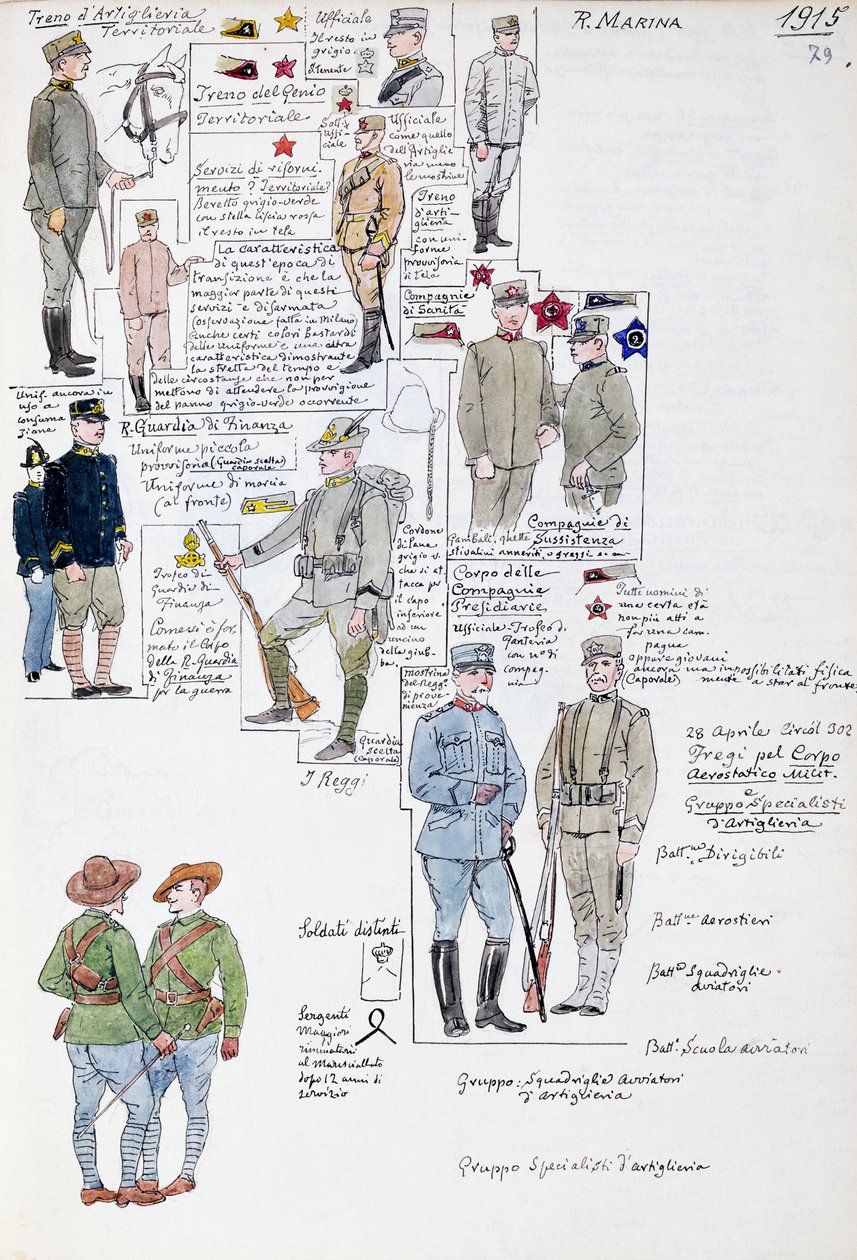 Treno d'Artiglieria
Territoriale
Ufficiale
Il resto in
grigio-
R. MARINA
1915
79
Treno del Genio
Territoriale
Sott
Uffi-
ciale
Ufficiale
come quello
dell'Artiglie
ria meno
le mostrine
Servizi di riforni-
mento? Territoriale?
Beretto grigio-verde
con stella liscia rossa
il resto in tela
Treno
d'arti-
glieria
con uni-
forme
provvisoria
di tela
La caratteristica
di quest'epoca di
transizione è che la
maggior parte di questi
servizi è disarmata
(osservazione fatta in Milano)
Anche certi colori bastardi
delle uniforme è una altra
caratteristica dimostrante
la stretta del tempo e
delle circostanze che non per
mettono di attendere la provvigione
del panno grigio-verde occorrente
Compagnie
di Sanità
2
Unif. ancora in
uso a
consuma
zione
R. Guardia di Finanza
Uniforme piccola
provvisoria (Guardia scelta)
caporale
Uniforme di marcia
(al fronte)
Trofeo di
Guardia di
Finanza
Come si è for
mato il Corpo
della R. Guardia
di Finanza
per la guerra
Cordone
di lana
grigio v.
che si at
tacca per
il capo
inferiore
ad un
uncino
della giub-
ba.
Guardia
scelta
(Caporale)
I Reggi
Compagnie di
Sussistenza
Gambali, ghette
stivalini anneriti, o greggi
Corpo delle
Compagnie
Presidiarie
Ufficiale-Trofeo di
fanteria
con no di
compag-
nia
mostrina
del Regg.
di prove-
nienza
Tutti uomini di
una certa età
non più atti a
far una cam-
pagna
oppure giovani
ancora ma impossibilitati fisica
mente a star al fronte
(Caporale)
28 Aprile Circol 302
Fregi pel Corpo
Aerostatico Milit.
e
Gruppo Specialisti
d'Artiglieria
Battne Dirigibili
Battne Aerostieri
Battne Squadriglie
aviatori
Batt. Scuola aviatori
Soldati distinti
Sergenti
Maggiori
rinunciatari
al Maresciallato
dopo 12 anni di
servizio
Gruppo: Squadriglie Avviatori
d'Artiglieria
Gruppo Specialisti d'artiglieria